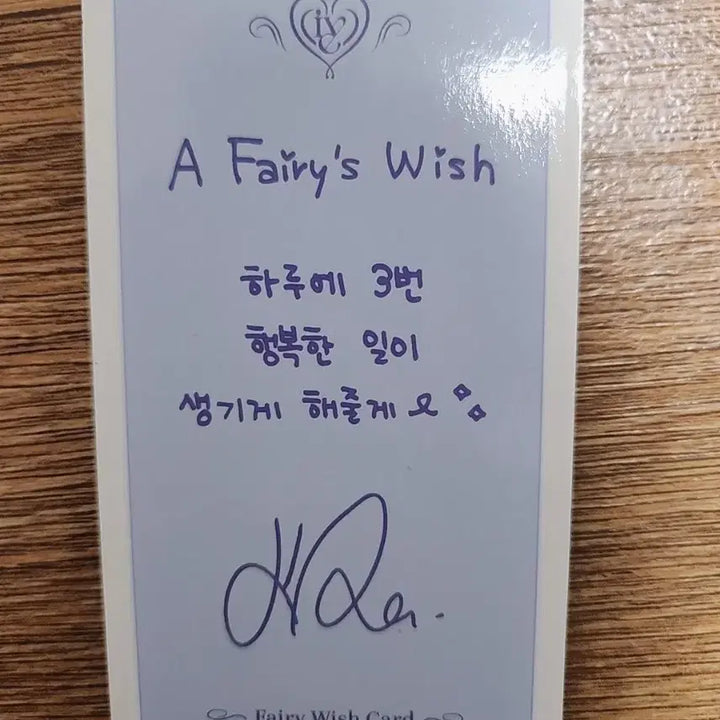 IVE
A Fairy's Wish
하루에 3번
행복한 일이
생기게 해줄게
Fairy Wish Card